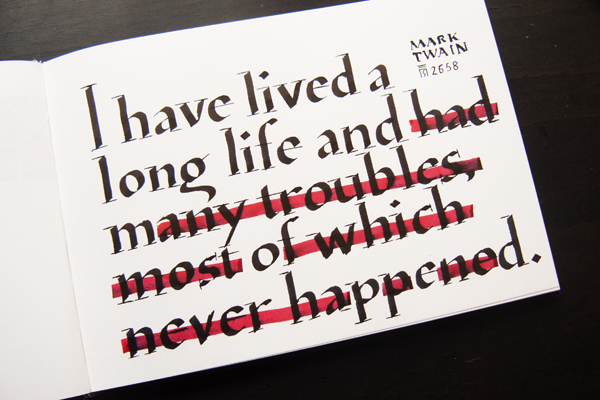 MARK
TWAIN
2658
I have lived a
long life and had
many troubles,
most of which
never happened.